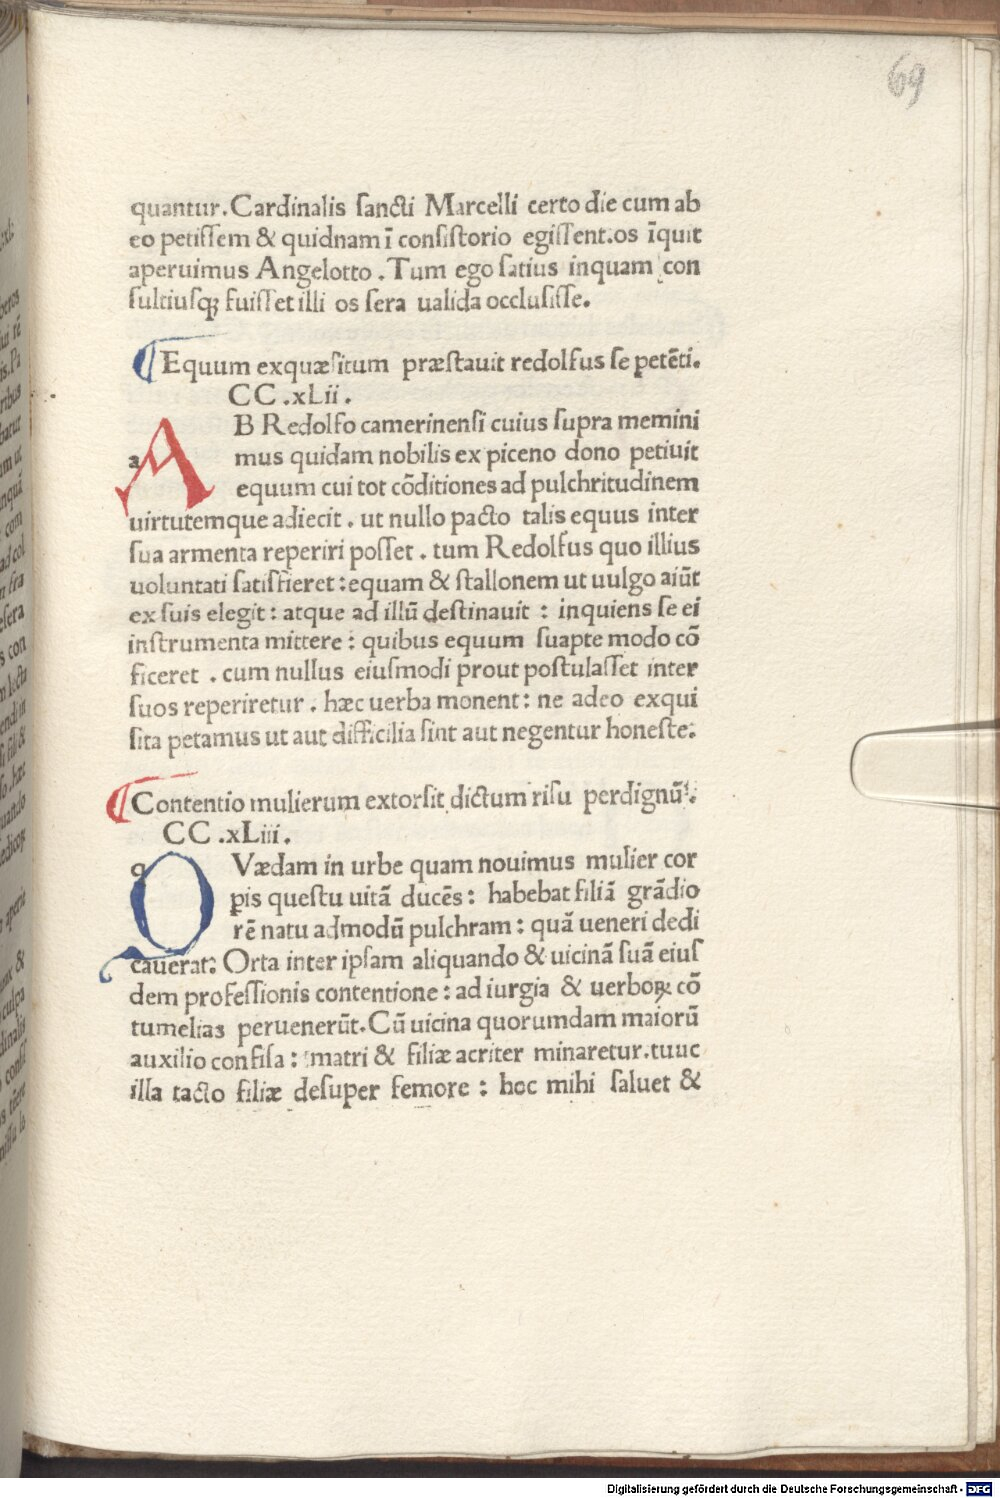 69
quantur. Cardinalis ſancti Marcelli certo die cum ab
eo petiſſem & quidnam ī conſiſtorio egiſſent. os īquit
aperuimus Angelotto. Tum ego ſatius inquam con
ſultiuſqꝫ fuiſſet illi os ſera ualida occluſiſſe.
¶ Equum exquæſitum præſtauit redolfus ſe petēti.
CC.xLii.
A B Redolfo camerinenſi cuius ſupra memini
mus quidam nobilis ex piceno dono petiuit
equum cui tot cōditiones ad pulchritudinem
uirtutemque adiecit. ut nullo pacto talis equus inter
ſua armenta reperiri poſſet. tum Redolfus quo illius
uoluntati ſatiſfieret: equam & ſtallonem ut uulgo aiūt
ex ſuis elegit: atque ad illū deſtinauit: inquiens ſe ei
inſtrumenta mittere: quibus equum ſuapte modo cō
ficeret. cum nullus eiuſmodi prout poſtulaſſet inter
ſuos reperiretur. hæc uerba monent: ne adeo exqui
ſita petamus ut aut difficilia ſint aut negentur honeſte.
¶ Contentio mulierum extorſit dictum riſu perdignū.
CC.xLiii.
Q Vædam in urbe quam nouimus mulier cor
pis queſtu uitā ducēs: habebat filiā grādio
rē natu admodū pulchram: quā ueneri dedi
cauerat: Orta inter ipſam aliquando & uicinā ſuā eiuſ
dem profeſſionis contentione: ad iurgia & uerboꝝ cō
tumelias peruenerūt. Cū uicina quorumdam maiorū
auxilio confiſa: matri & filiæ acriter minaretur. tuuc
illa tacto filiæ deſuper femore: hoc mihi ſaluet &
Digitalisierung gefördert durch die Deutsche Forschungsgemeinschaft - DFG